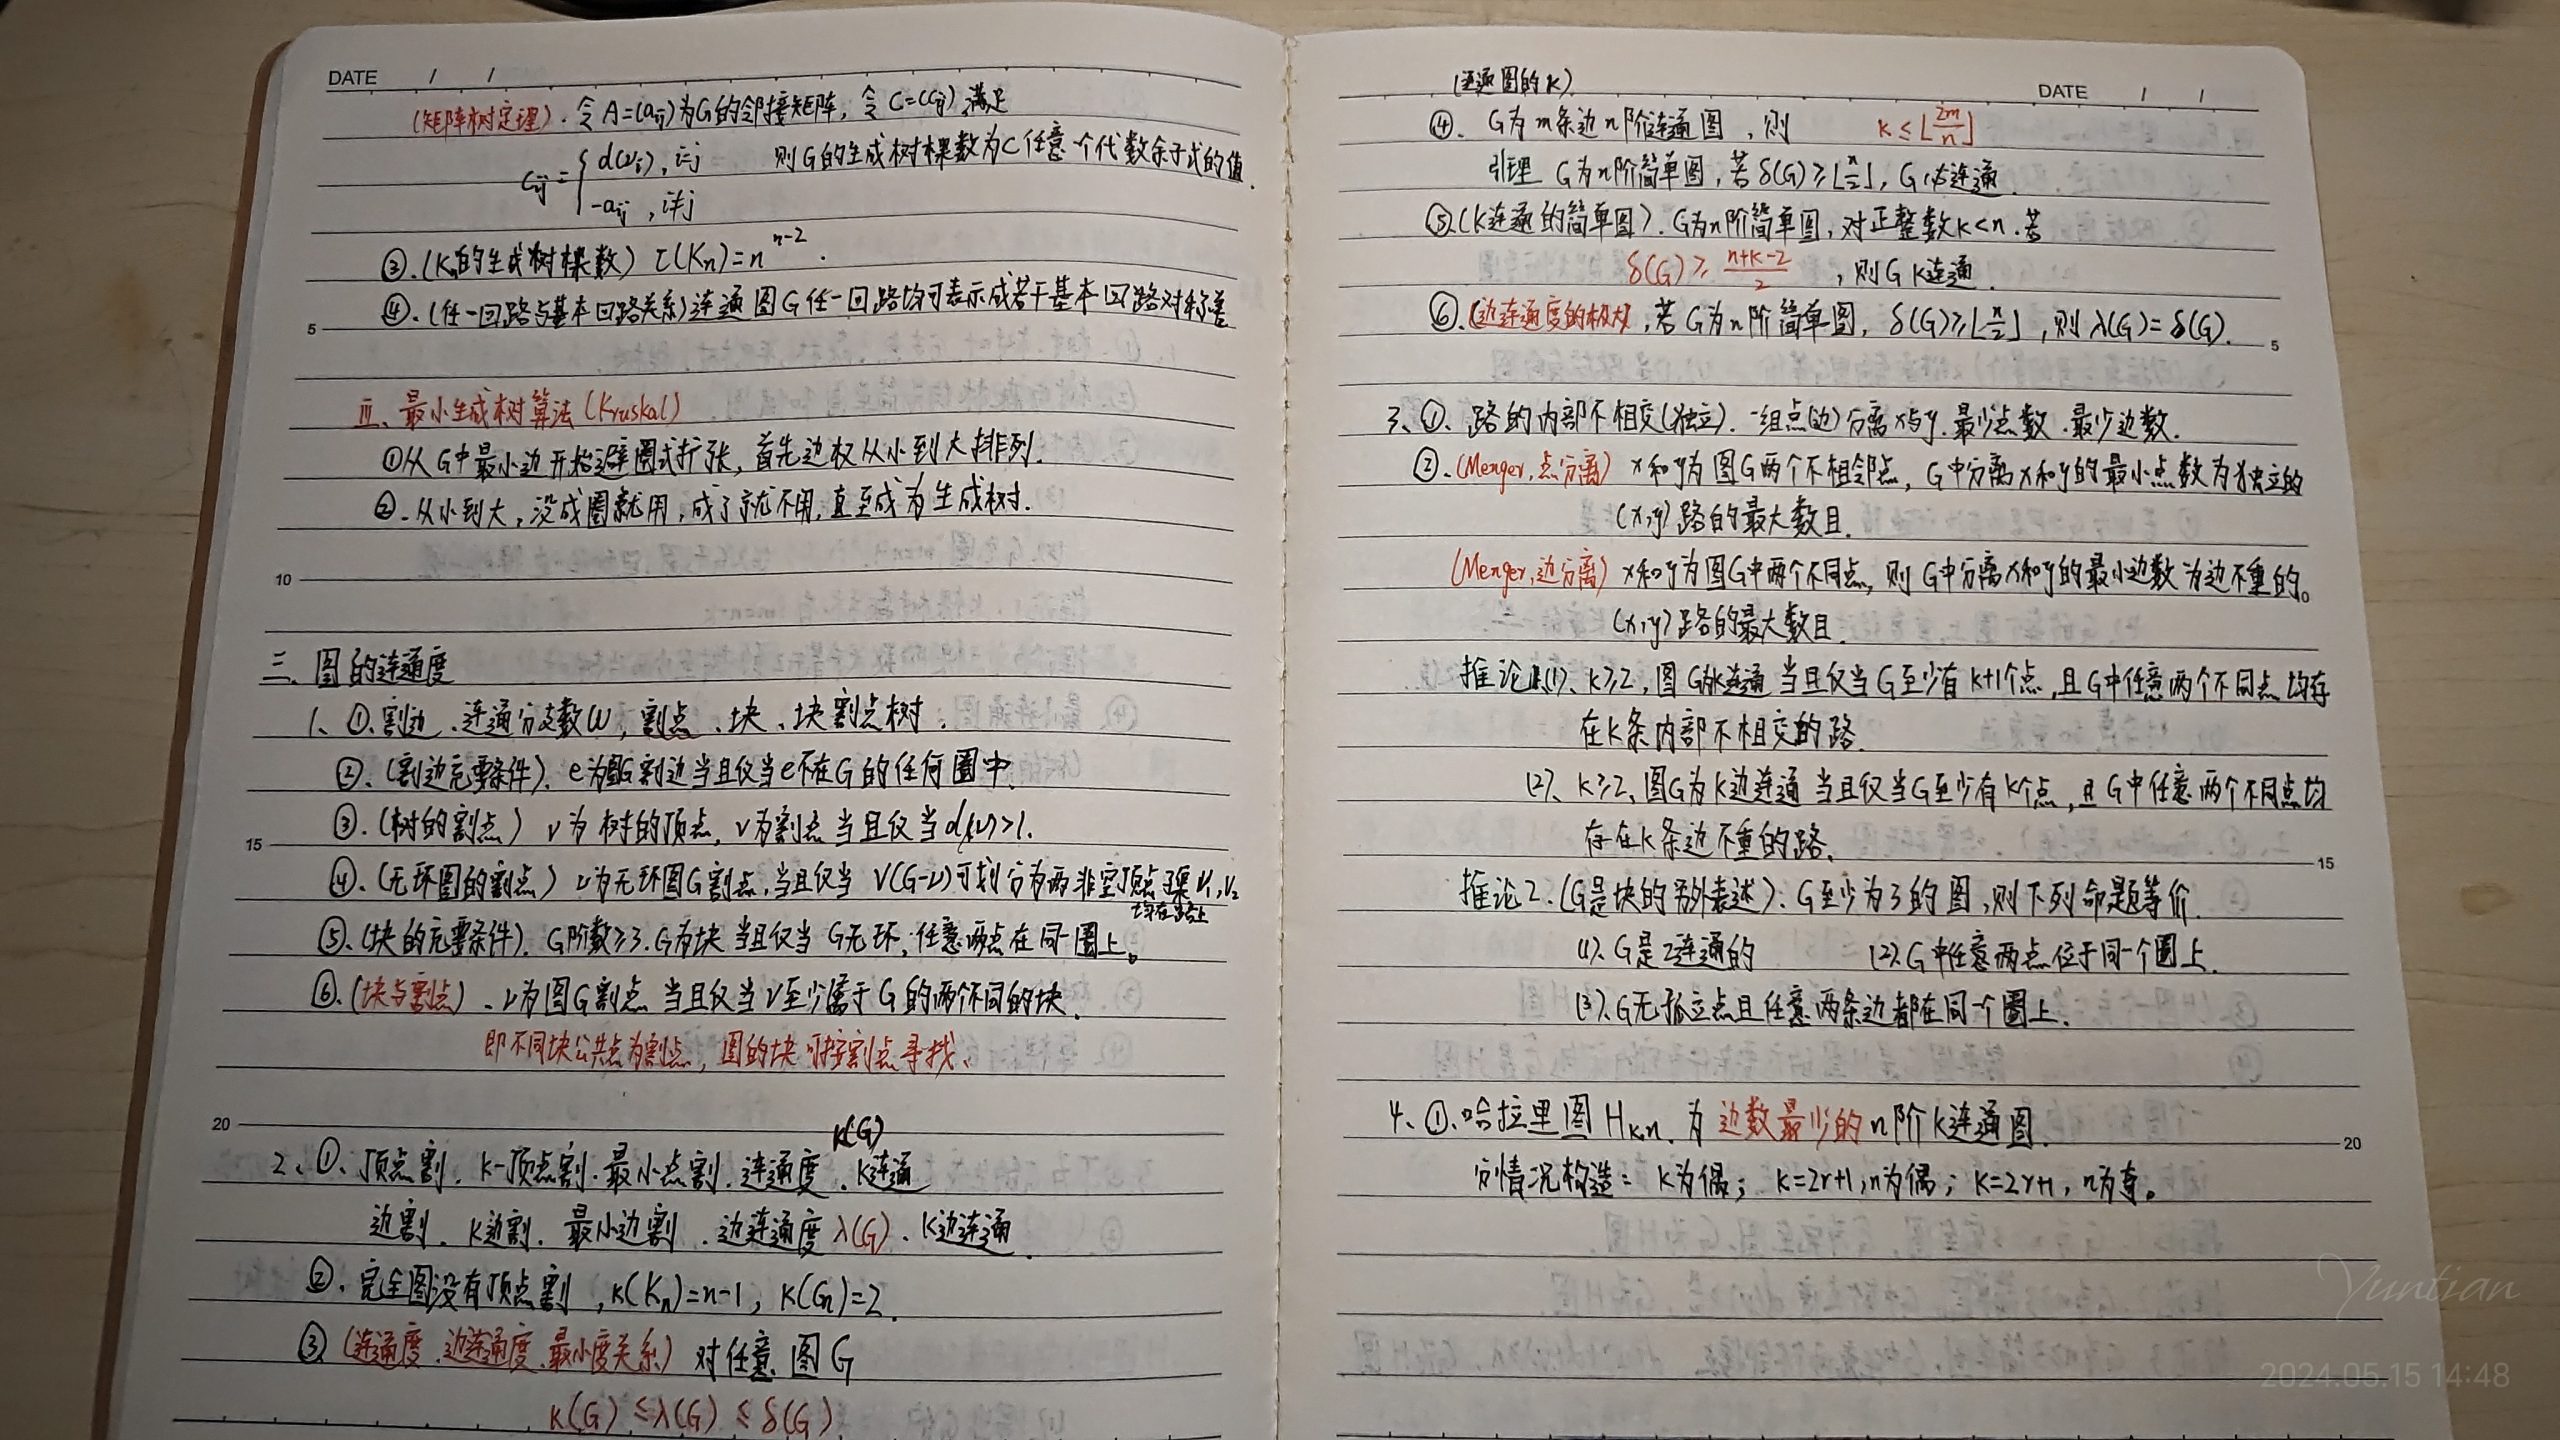 DATE / /
(矩阵树定理). 令 A=(aij)为G的邻接矩阵, 令 C=(cij) 满足
cij = { d(vi), i=j 则G的生成树棵数为C任意一个代数余子式的值.
-aij, i≠j
③.(Kn的生成树棵数) τ(Kn)=n^{n-2}.
④.(任一回路与基本回路关系)连通图G任一回路均可表示成若干基本回路对称差
5
三、最小生成树算法(Kruskal)
①从G中最小边开始避圈式扩张, 首先边权从小到大排列.
②.从小到大, 没成圈就用, 成了就不用, 直至成为生成树.
10
三. 图的连通度
1、①.割边、连通分支数ω, 割点、块、块割点树.
②.(割边充要条件). e为图G割边当且仅当e不在G的任何圈中.
③.(树的割点) v为树的顶点, v为割点当且仅当d(v)>1.
15
④.(无环图的割点) v为无环图G割点, 当且仅当 V(G-v)可划分为两非空顶点子集V1,V2
均在路上
⑤.(块的充要条件). G阶数≥3. G为块当且仅当 G无环, 任意两点在同一圈上。
⑥.(块与割点). v为图G割点当且仅当v至少属于G的两个不同的块.
即不同块公共点为割点, 图的块可按割点寻找.
20
κ(G)
2、①、顶点割. k-顶点割. 最小点割. 连通度. k连通
边割. k边割. 最小边割. 边连通度 λ(G). k边连通.
②. 完全图没有顶点割, κ(Kn)=n-1, κ(Cn)=2.
③ (连通度.边连通度.最小度关系) 对任意图G
κ(G) ≤ λ(G) ≤ δ(G)
(连通图的κ)
DATE / /
④. G为m条边n阶连通图, 则 κ ≤ ⌊2m/n⌋
引理 G为n阶简单图, 若 δ(G)≥⌊n/2⌋, G必连通.
⑤.(k连通的简单图). G为n阶简单图, 对正整数k<n. 若
δ(G) ≥ (n+k-2)/2, 则G k连通.
⑥.(边连通度的极大), 若G为n阶简单图, δ(G)≥⌊n/2⌋, 则λ(G)=δ(G).
5
3、①. 路的内部不相交(独立). 一组点(边)分离x与y. 最少点数. 最少边数.
②.(Menger, 点分离) x和y为图G两个不相邻点, G中分离x和y的最小点数为独立的
(x,y)路的最大数目.
(Menger, 边分离) x和y为图G中两个不同点, 则G中分离x和y的最小边数为边不重的。
(x,y)路的最大数目.
推论1.(1)、k≥2, 图G为k连通当且仅当G至少有k+1个点, 且G中任意两个不同点均存
在k条内部不相交的路.
(2)、k≥2, 图G为k边连通当且仅当G至少有k个点, 且G中任意两个不同点均
存在k条边不重的路.
15
推论2.(G是块的另外表述): G至少为3的图, 则下列命题等价.
(1). G是2连通的 (2). G中任意两点位于同一个圈上.
(3). G无孤立点且任意两条边都在同一个圈上.
4、①. 哈拉里图Hk,n. 为边数最少的n阶k连通图.
20
分情况构造: k为偶; k=2r+1, n为偶; k=2r+1, n为奇。
Yuntian
2024.05.15 14:48